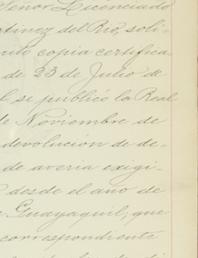 Señor Licenciado
tinez del Rio, soli-
copia certifica
de 23 de Julio de
se publicó la Real
de Noviembre de
devolucion de de-
de averia exigi-
desde el año de
Guayaquil, que
correspondiente